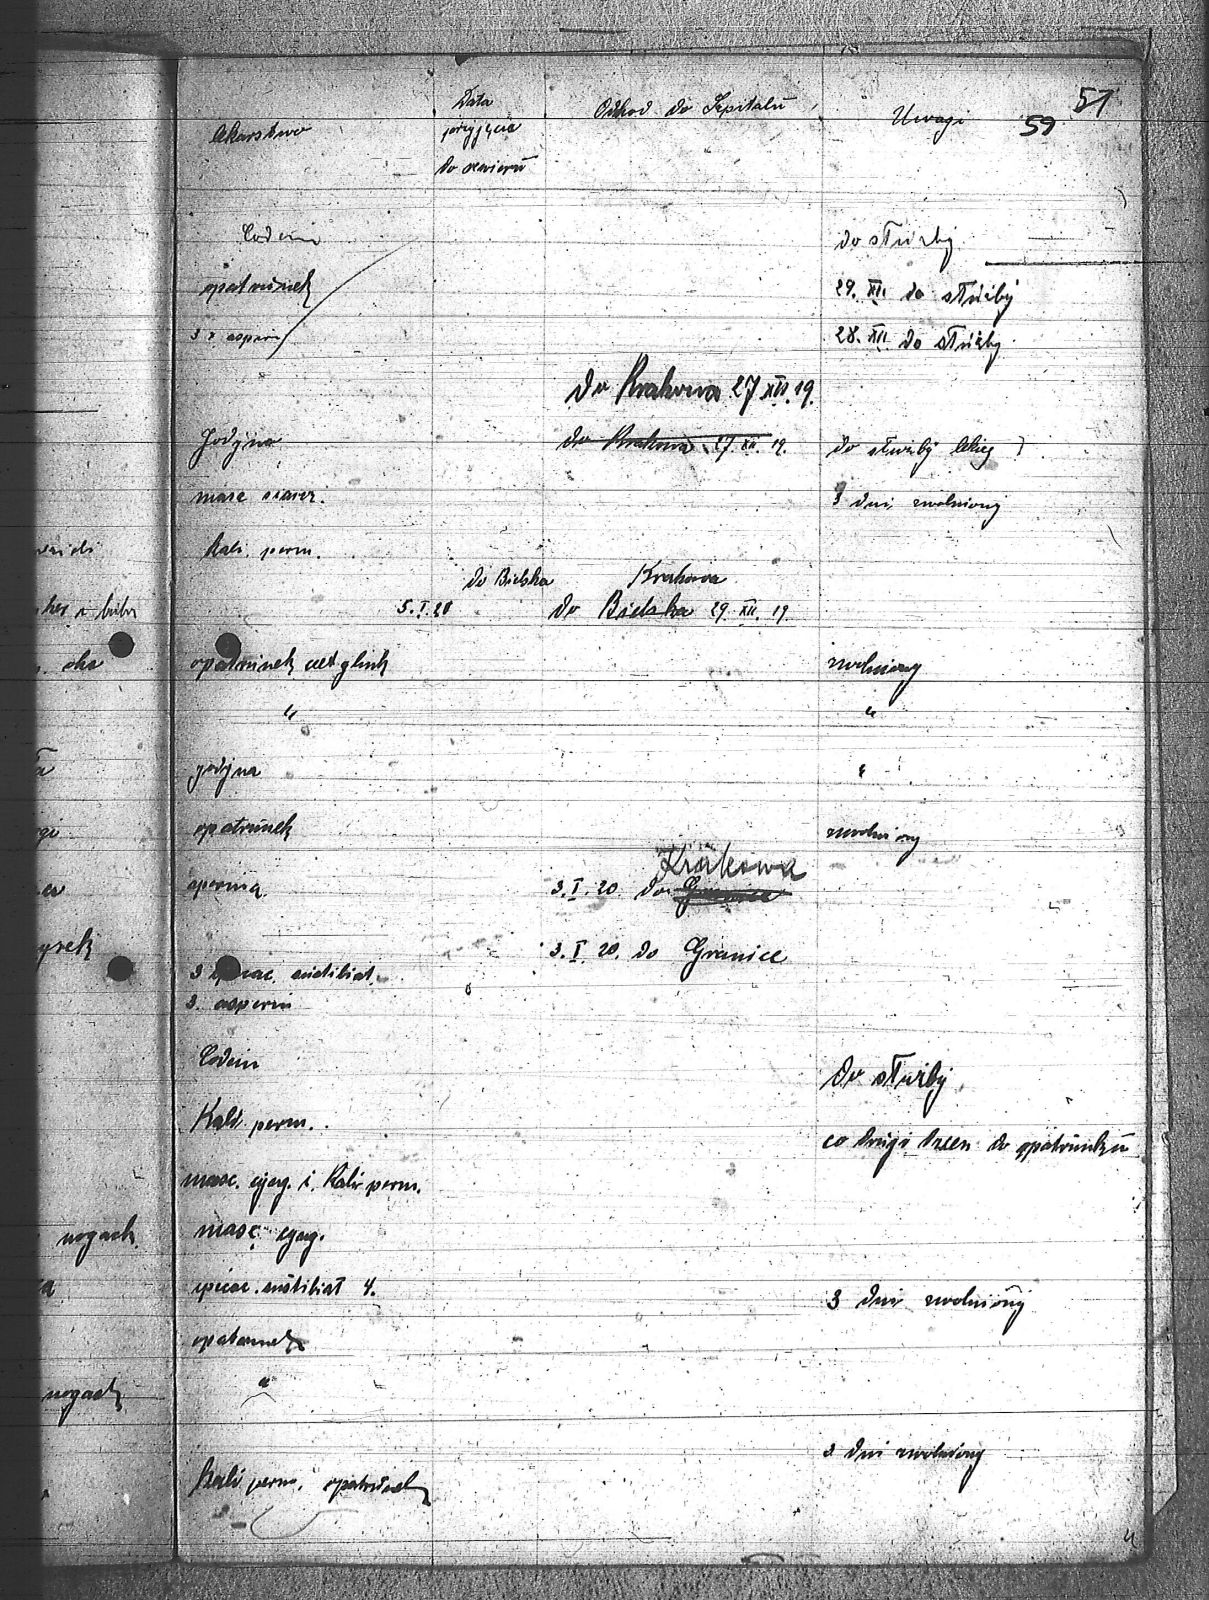 51
59
lekarstwo
Data przyjęcia do rewieru
Odhod do Szpitalu
Uwagi
Codein
do służby
opatrunek
29. XII. do służby
3 x aspirin
28. XII. do służby
do Krakowa 27 XII. 19.
Jodyna
do Krakowa 27. XII. 19.
do służby lekiej
masc szarz.
3 dni zwolniony
Kali perm.
do Bielska
Krakowa
5. I. 20
do Bielska 29. XII. 19.
oka
opatrunek acet glink
zwolniony
"
"
jodyna
"
opatrunek
zwolniony
Krakowa
3. I. 20 do Granice
3. I. 20. do Granice
3
3. asperin
Codein
do służby
Kali perm.
co drugi dzien do opatrunku
masc. i. Kali perm.
nogach.
masc
4.
3 dni zwolniony
opatrunek
"
nogach
3 dni zwolniony
Kali perm. opatrunek